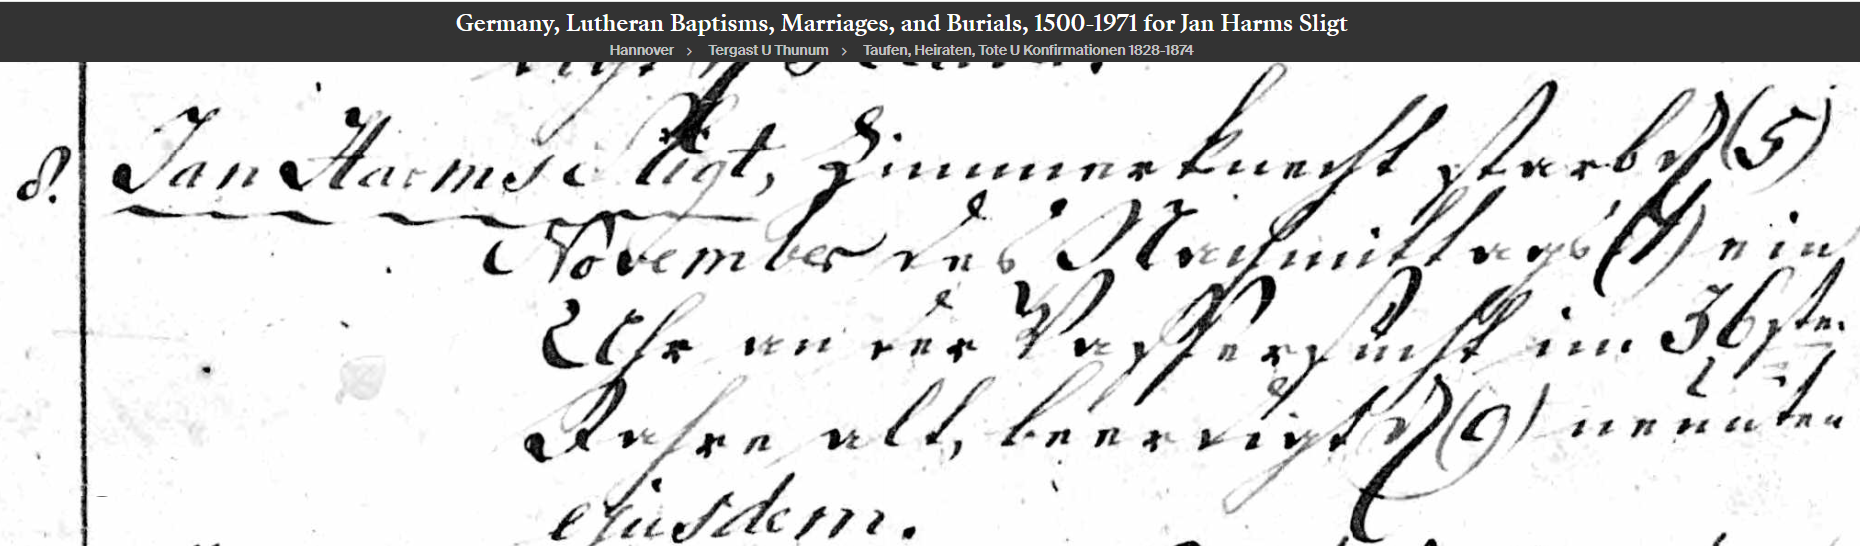 Germany, Lutheran Baptisms, Marriages, and Burials, 1500-1971 for Jan Harms Sligt
Hannover > Tergast U Thunum > Taufen, Heiraten, Tote U Konfirmationen 1828-1874
8. Jan Harms Sligt, Zimmerknecht starb d (5)
November des Nachmittags (1) ein
Uhr an der Wassersucht im 36sten
Jahre alt, beerdigt d (9) neunten
ejusdem.